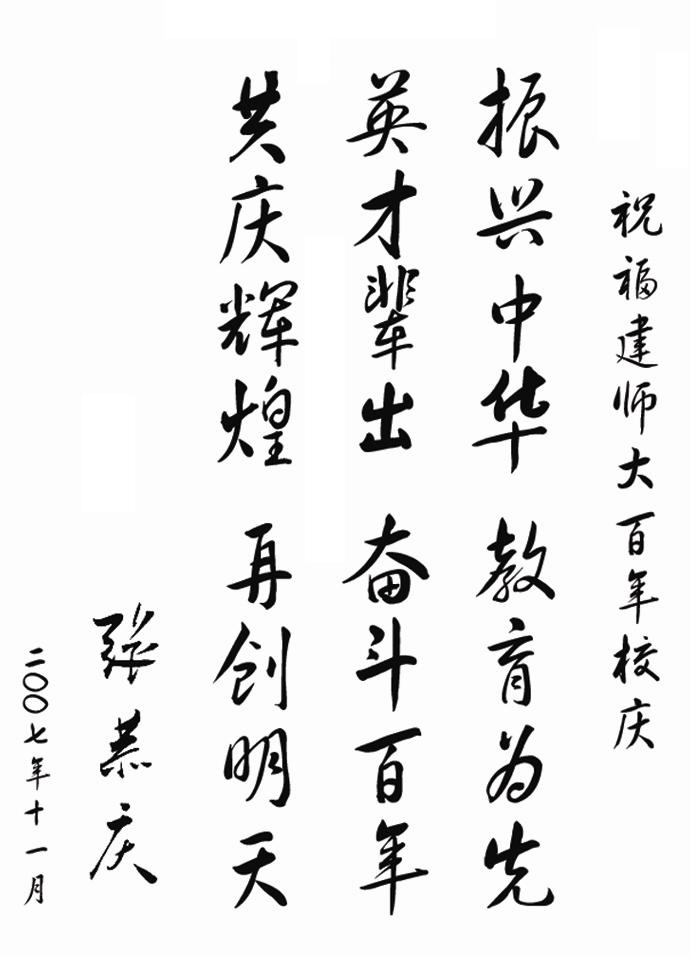 祝福建师大百年校庆
振兴中华 教育为先
英才辈出 奋斗百年
共庆辉煌 再创明天
张恭庆
二〇〇七年十一月